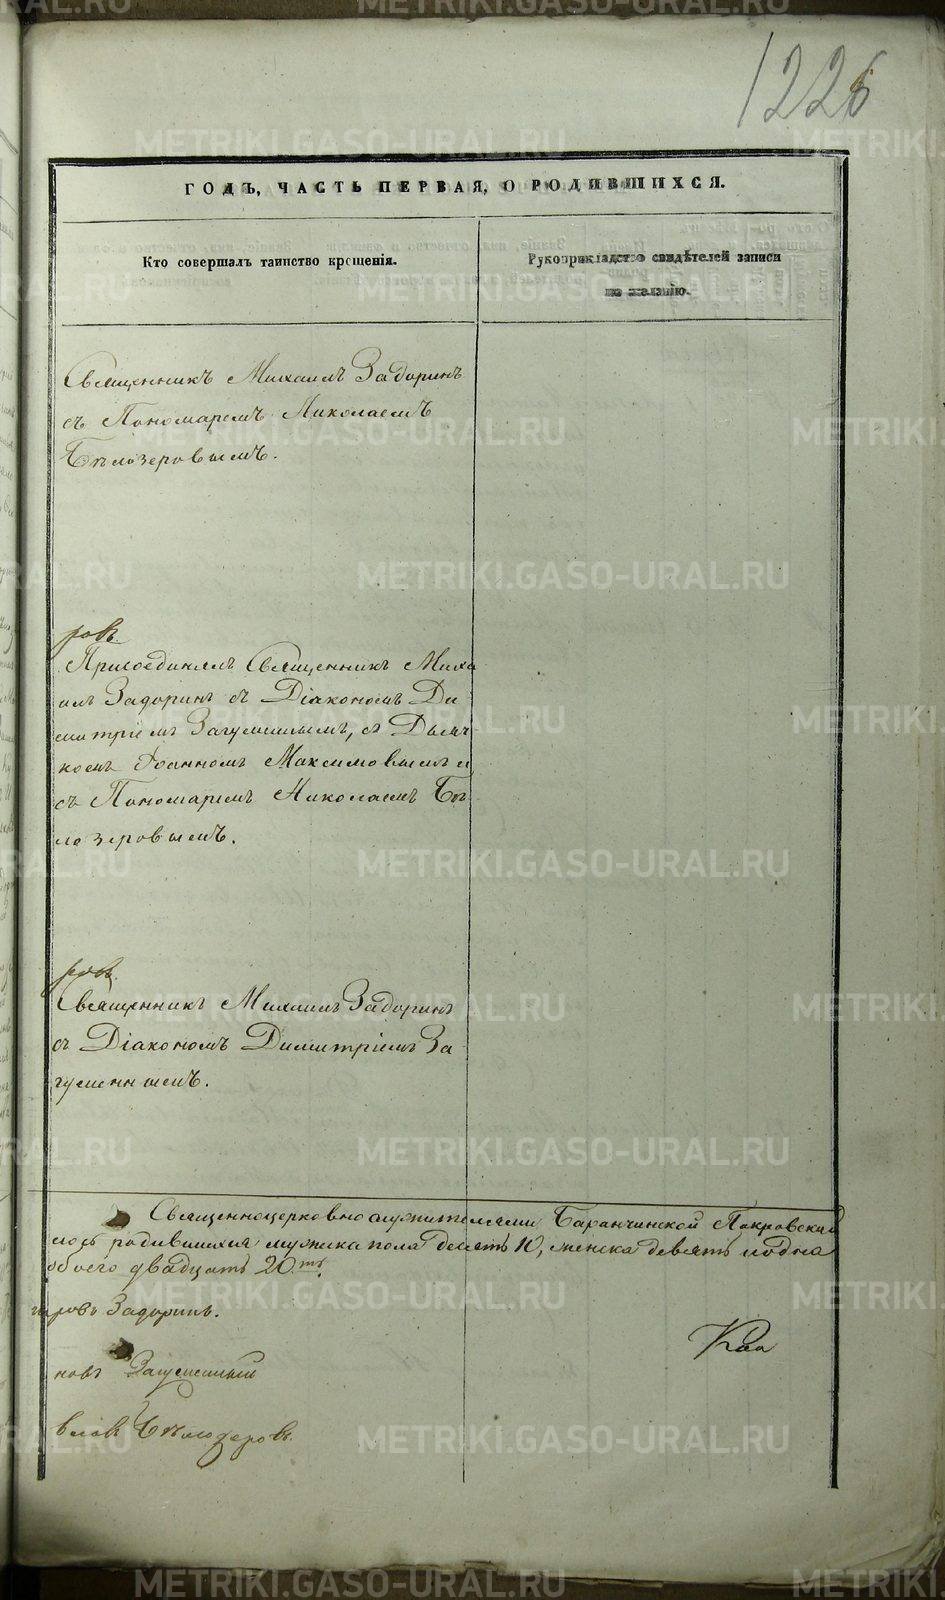 1226
ГОДЪ, ЧАСТЬ ПЕРВАЯ, О РОДИВШИХСЯ.
Кто совершалъ таинство крещенія.
Рукоприкладство свидѣтелей записи
по желанію.
Священникъ Михаилъ Задоринъ
съ Пономаремъ Николаемъ
Бѣлозеровымъ.
ровъ.
Присоединялъ Священникъ Миха
илъ Задоринъ съ Діакономъ Ди
митріемъ Загуменнымъ, съ Дьяч
комъ Іоанномъ Максимовымъ и
съ Пономаремъ Николаемъ Бѣ
лозеровымъ.
ровъ.
Священникъ Михаилъ Задоринъ
съ Діакономъ Димитріемъ За
гуменнымъ.
Священноцерковнослужителями Баранчинской Покровской
лось родившихся мужска пола десять 10, женска девять
обоего двадцать 20ть
Задоринъ.
новъ Загуменный
Бѣлозеровъ.
METRIKI.GASO-URAL.RU